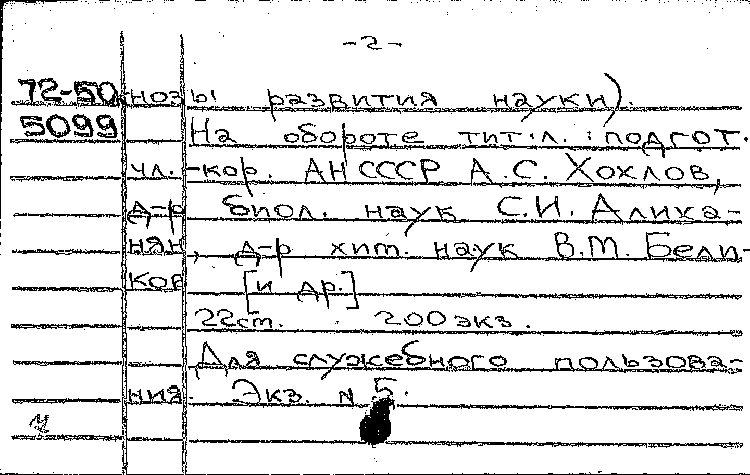 -2-
72-50 нозы развития науки).
5099 На обороте тит.л.: подгот.
чл.-кор. АН СССР А.С. Хохлов,
д-р биол. наук С.И. Алиха-
нян, д-р хим. наук В.М. Бели-
ков [и др.]
22 ст. 200 экз.
Для служебного пользова-
ния. Экз. N 5.